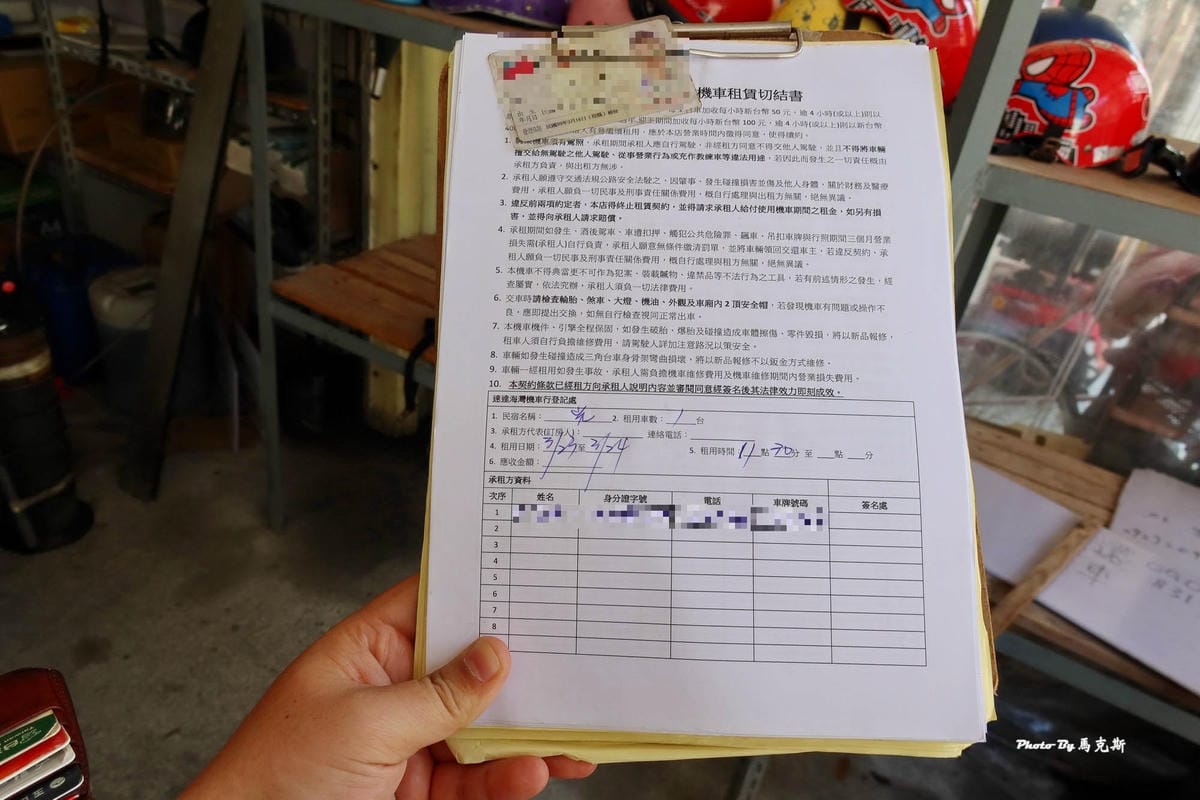 機車租賃切結書
台車加收每小時新台幣 50 元，逾 4 小時(或以上)則以
期間加收每小時新台幣 100 元，逾 4 小時(或以上)則以新台幣
租用，應於本店營業時間內徵得同意，使得續約。
1. 駕照，承租期間承租人應自行駕駛，非經租方同意不得交他人駕駛，並且不得將車輛
擅交給無駕駛之他人駕駛、從事營業行為或充作教練車等違法用途，若因此而發生之一切責任概由
承租方負責，與出租方無涉。
2. 承租人願遵守交通法規公路安全法駛之，因肇事、發生碰撞損害並傷及他人身體，關於財務及醫療
費用，承租人願負一切民事及刑事責任關係費用，概自行處理與出租方無關，絕無異議。
3. 違反前兩項約定者，本店得終止租賃契約，並得請求承租人給付使用機車期間之租金，如另有損
害，並得向承租人請求賠償。
4. 承租期間如發生、酒後駕車、車遭扣押、觸犯公共危險罪、飆車、吊扣車牌與行照期間三個月營業
損失需(承租人)自行負責，承租人願意無條件繳清罰單，並將車輛領回交還車主，若違反契約，承
租人願負一切民事及刑事責任關係費用，概自行處理與租方無關，絕無異議。
5. 本機車不得典當更不可作為犯案、裝載贓物、違禁品等不法行為之工具，若有前述情形之發生，經
查屬實，依法究辦，承租人須負一切法律費用。
6. 交車時請檢查輪胎、煞車、大燈、機油，外觀及車廂內 2 頂安全帽，若發現機車有問題或操作不
良，應即提出交換，如無自行檢查視同正常出車。
7. 本機車機件、引擎全程保固，如發生破胎，爆胎及碰撞造成車體擦傷、零件毀損，將以新品報修，
租車人須自行負擔維修費用，請駕駛人詳加注意路況以策安全。
8. 車輛如發生碰撞造成三角台車身骨架彎曲損壞，將以新品報修不以鈑金方式維修。
9. 車輛一經租用如發生事故、承租人需負擔機車維修費用及機車維修期間內營業損失費用。
10. 本契約條款已經租方向承租人說明內容並審閱同意經簽名後其法律效力即刻成效。
達達海灣機車行登記處
1. 民宿名稱： 2. 租用車數： 1 台
3. 承租方代表(訂房人)： 連絡電話：
4. 租用日期：3/23 至 3/24 5. 租用時間 11 點 30 分 至 點 分
6. 應收金額：
承租方資料
次序 姓名 身分證字號 電話 車牌號碼 簽名處
1
2
3
4
5
6
7
8
Photo By 馬克斯